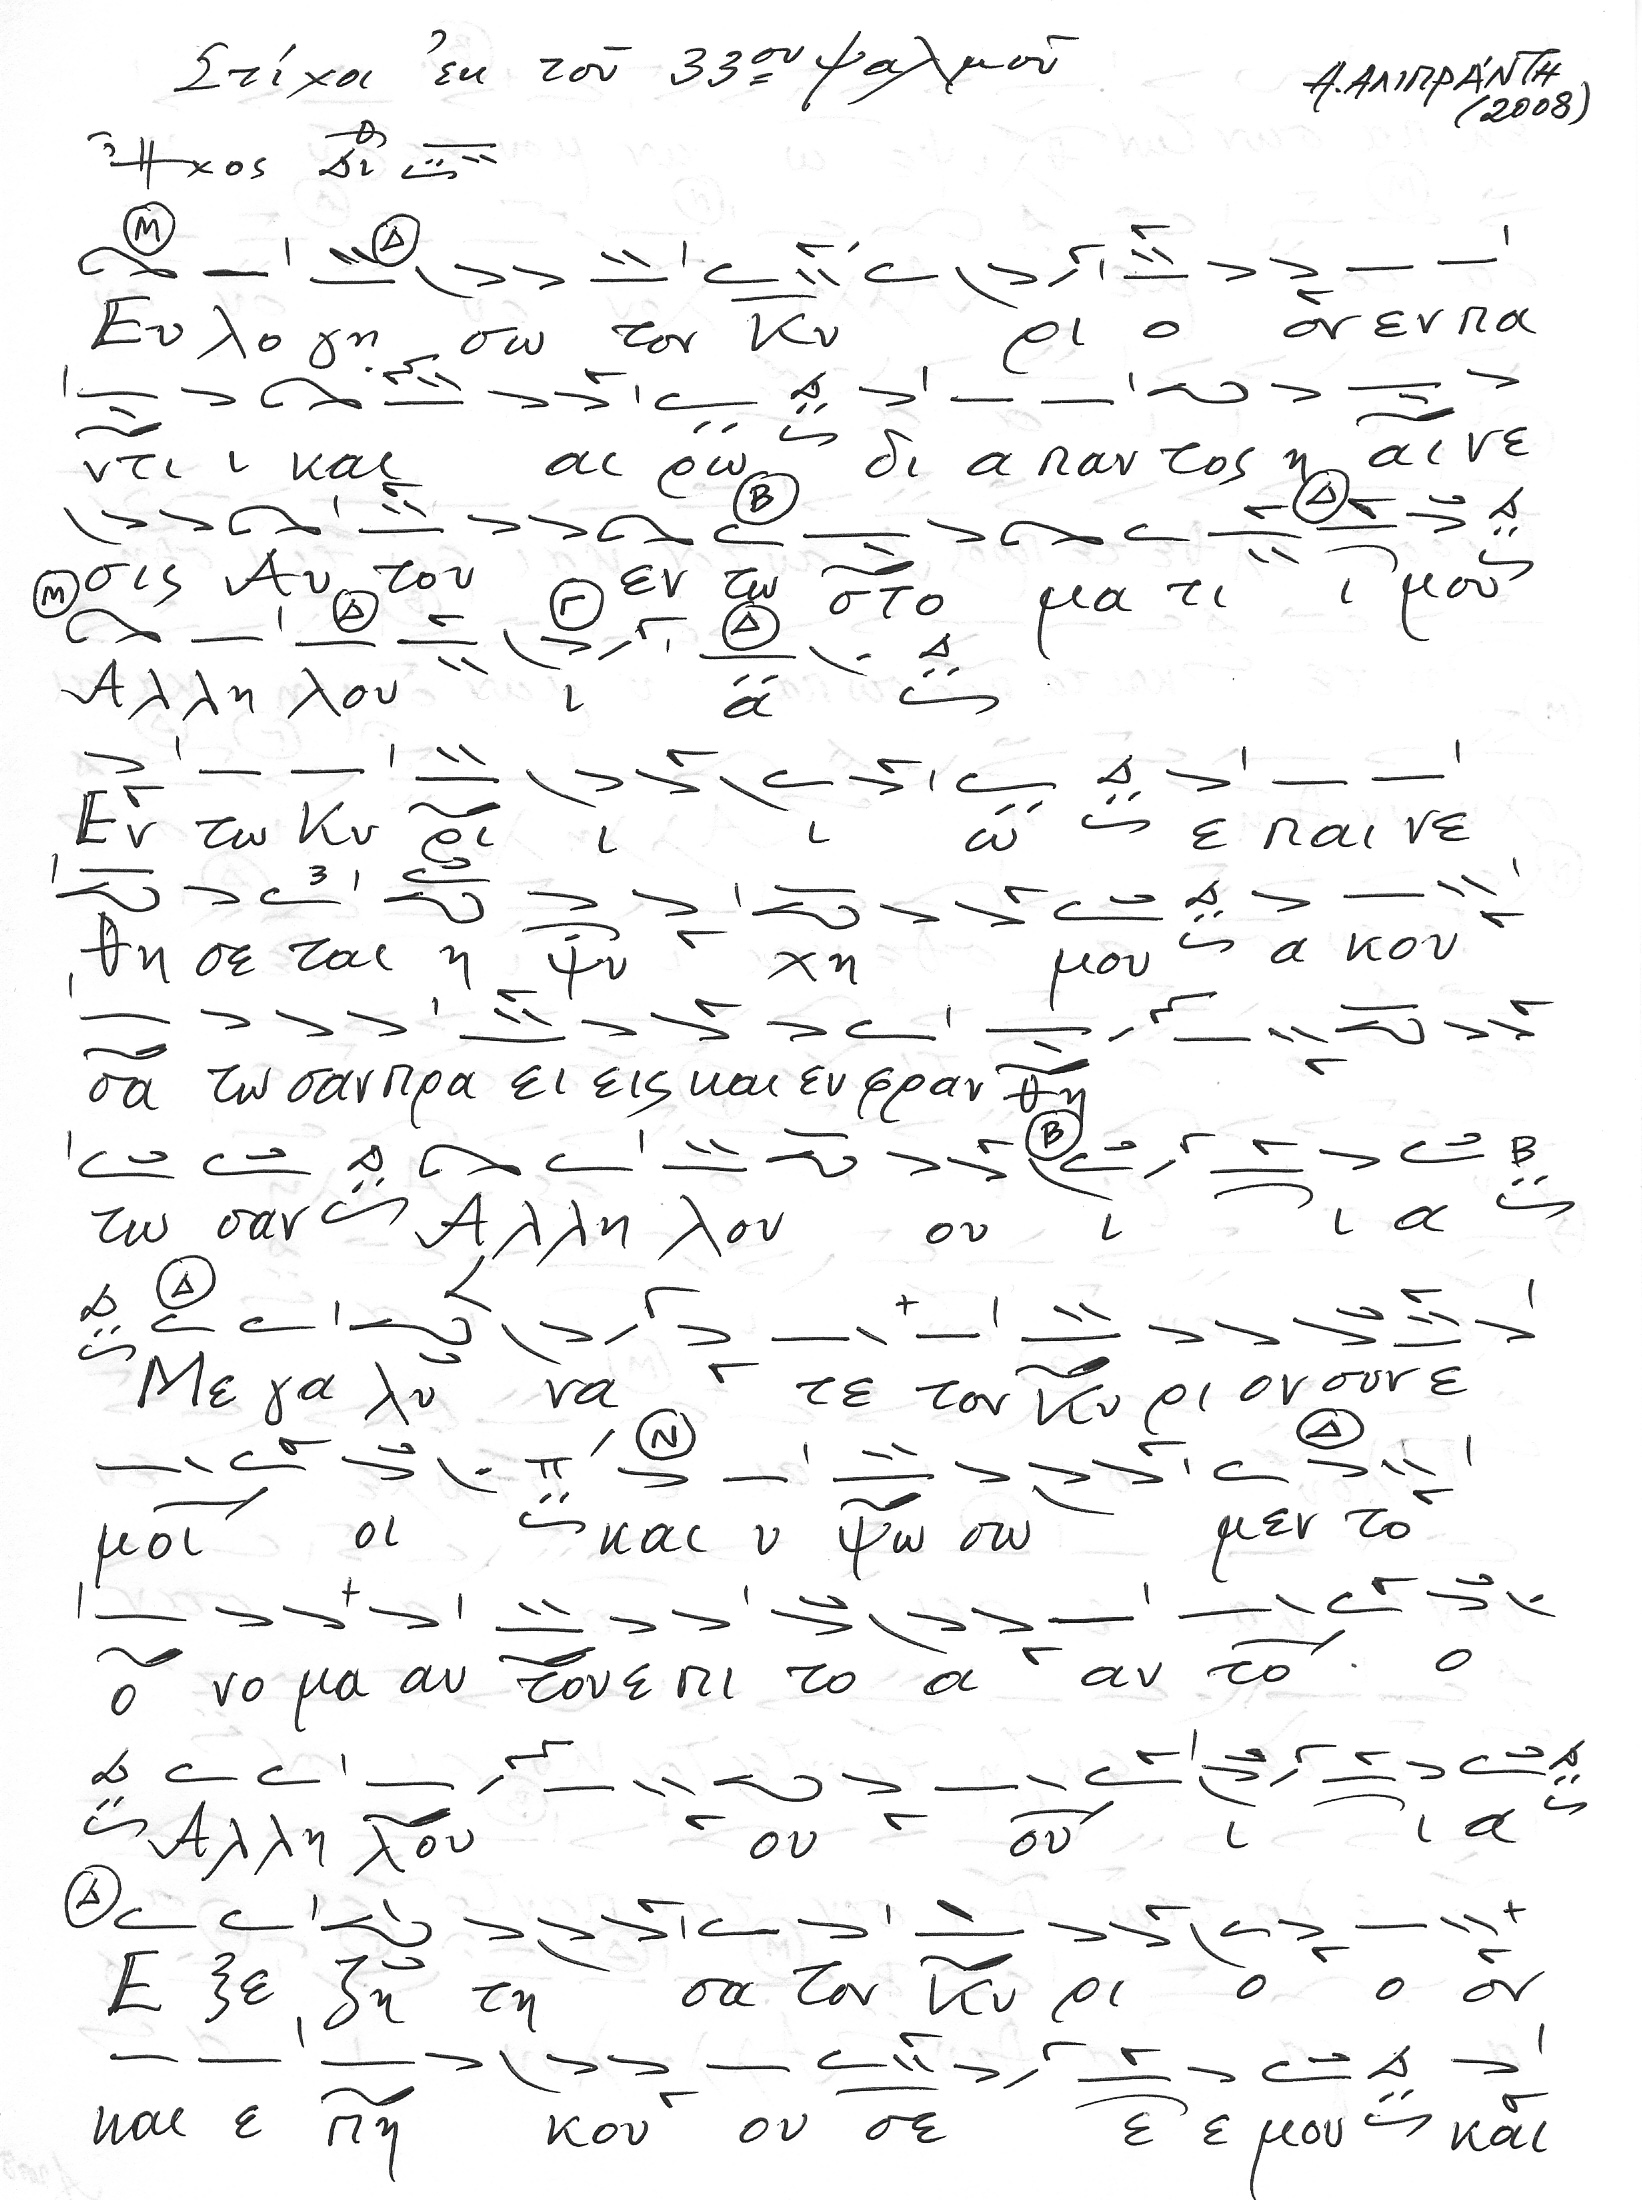 Στίχοι ἐκ τοῦ 33ου ψαλμοῦ
Α. ΑΛΙΠΡΆΝΤΗ
(2008)
Ἦχος Δι
Μ Δ
Ευ λο γη σω τον Κυ ρι ο ον εν πα
ντι ι και αι ρω δι α παν τος η αι νε
Β Δ
σις Αυ του εν τω στο μα τι ι μου
Μ Δ Γ Δ
Αλ λη λου ι α
Εν τω Κυ ρι ι ι ω ε παι νε
θη σε ται η ψυ χη μου α κου
σα τω σαν πρα ει εις και ευ φραν θη
Β Β
τω σαν Αλ λη λου ου ι ι α
Δ
Με γα λυ να τε τον Κυ ρι ον συν ε
Ν Δ
μοι οι και υ ψω σω μεν το
ο νο μα αυ του ε πι το α αυ το ο
Αλ λη λου ου ου ι ι α
Δ
Ε ξε ζη τη σα τον Κυ ρι ο ο ον
και ε πη κου ου σε ε ε μου και